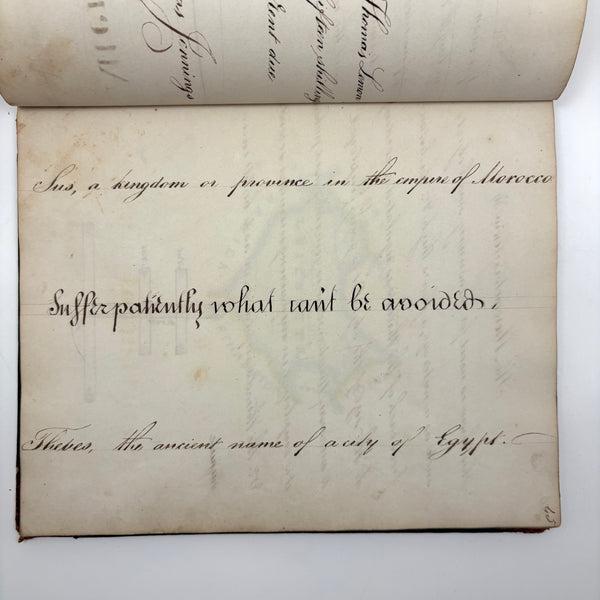 Thomas Lemon
fifteen shilling
Rent due
Jennings
Sus, a kingdom or province in the empire of Morocco
Suffer patiently what can't be avoided.
Thebes, the ancient name of a city of Egypt.